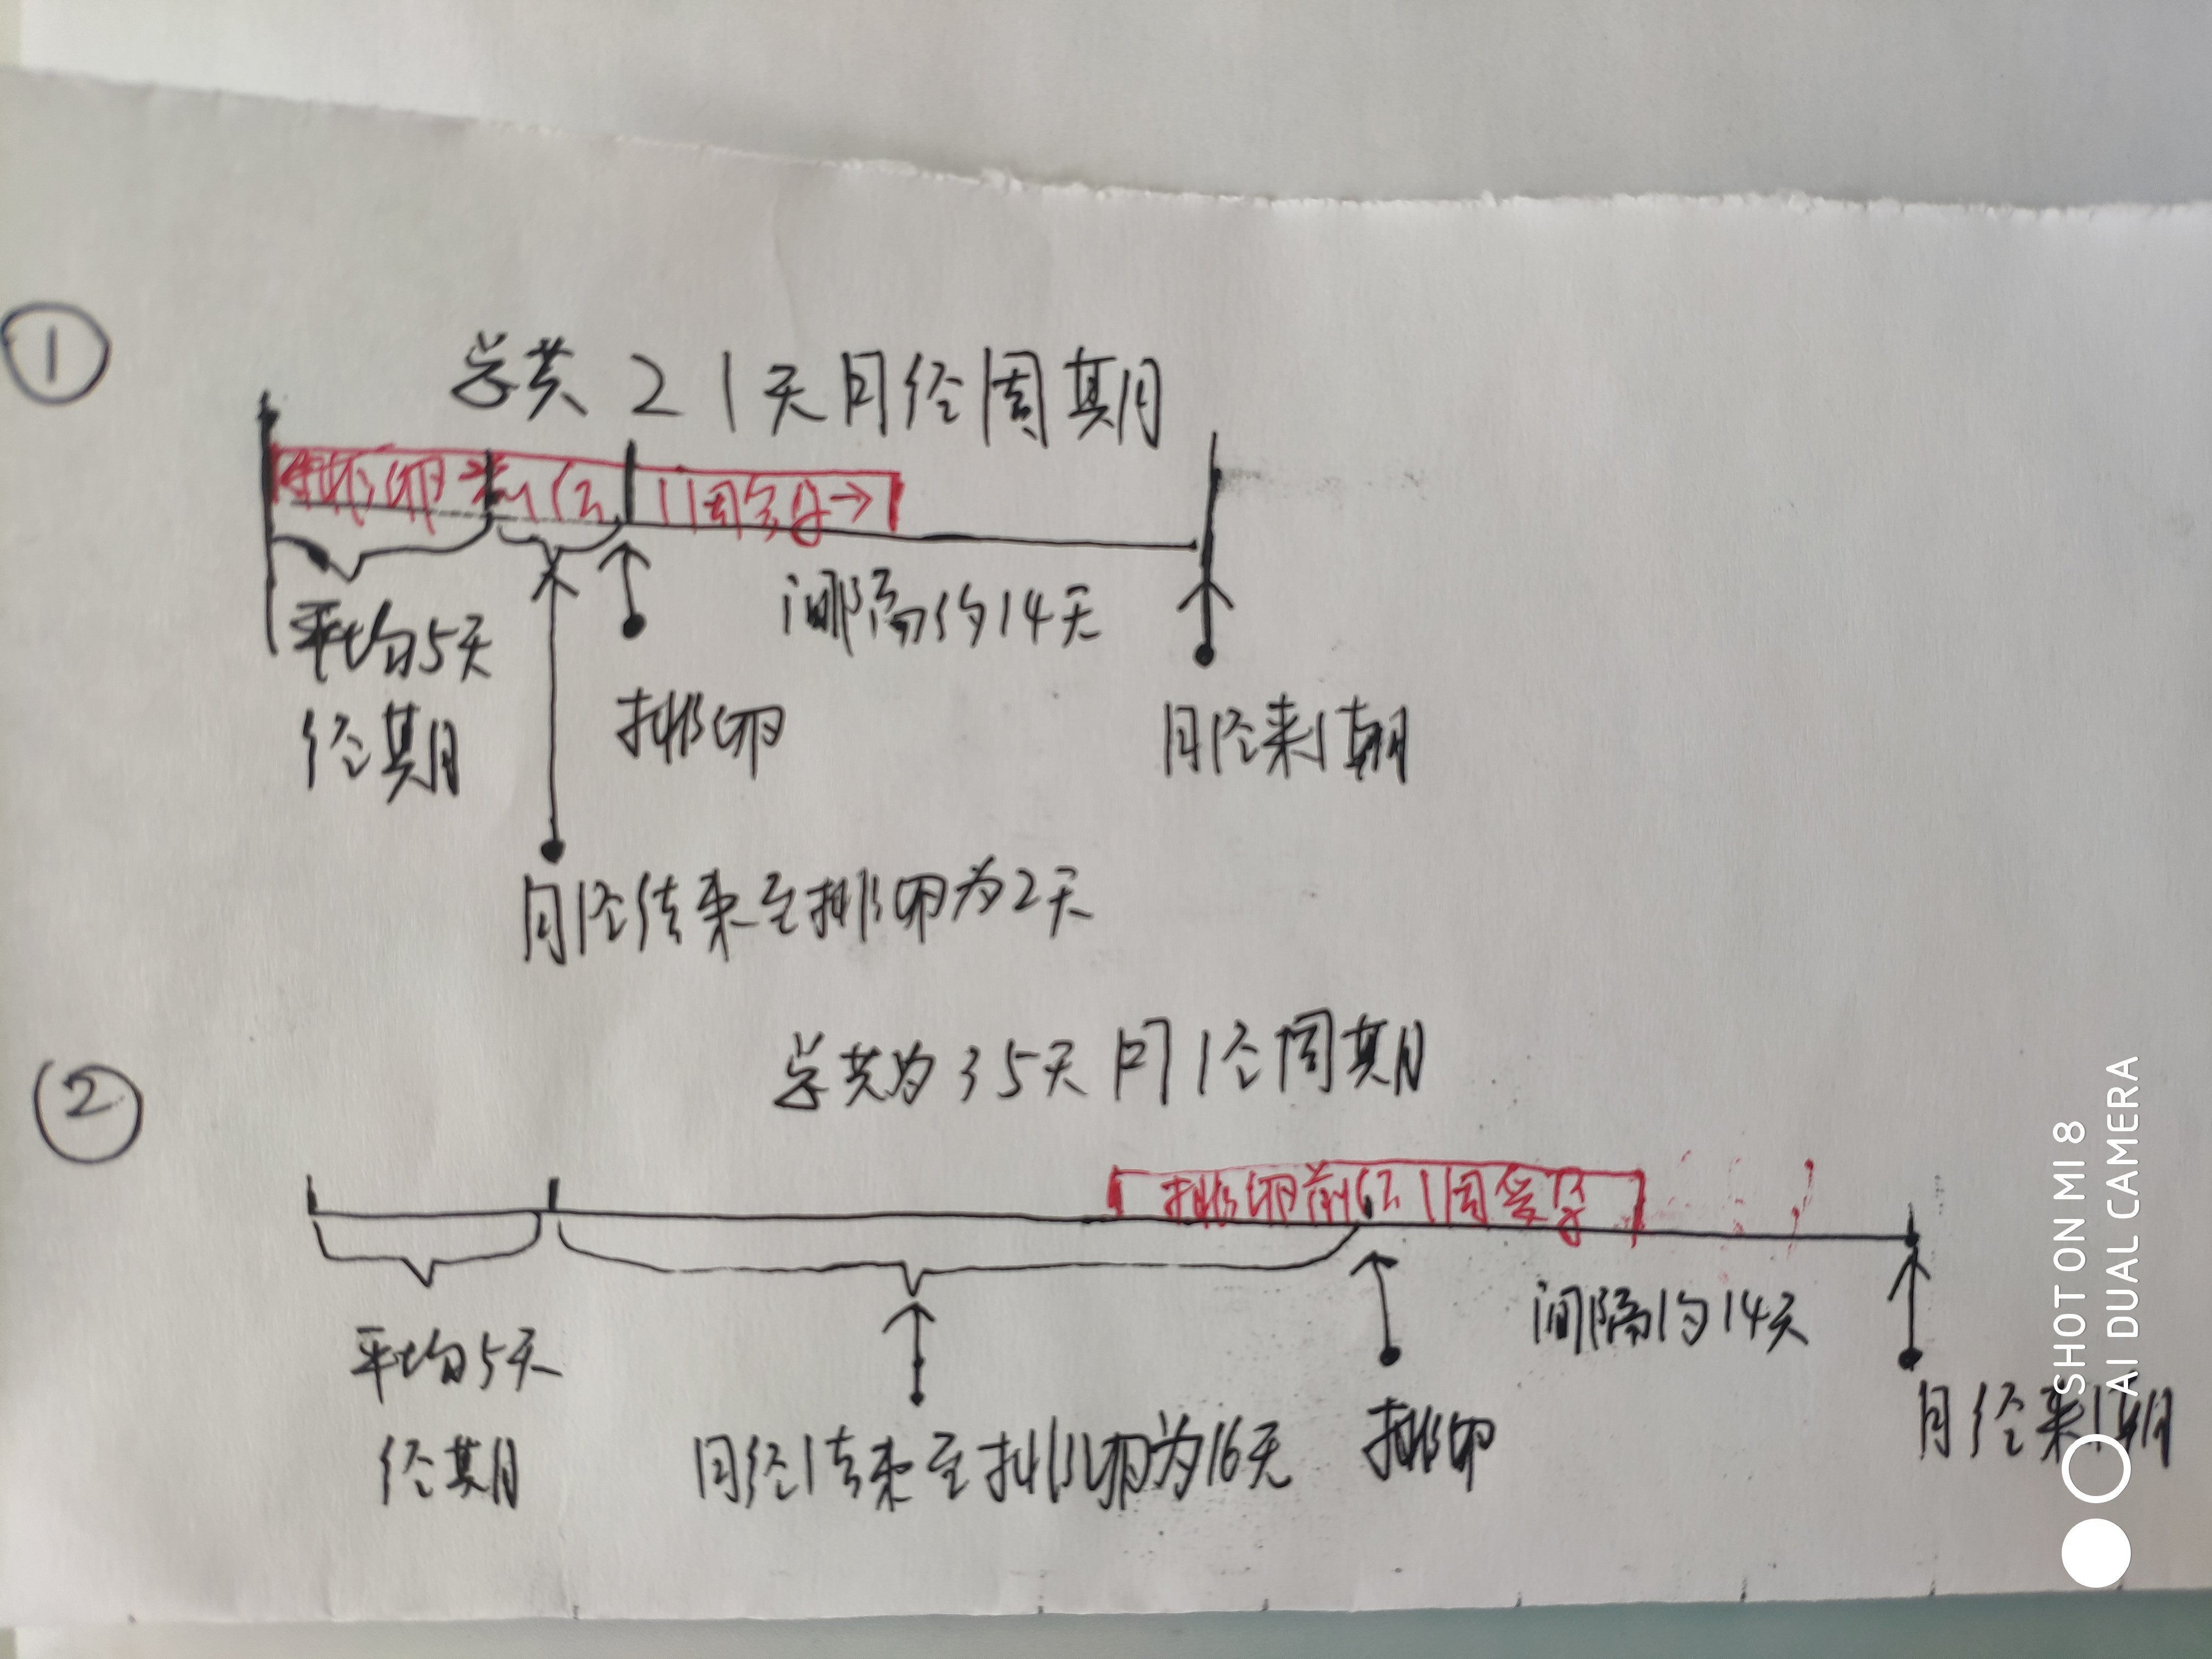 ①
总共21天月经周期
排卵前后1周受孕→
平均5天
经期
排卵
间隔约14天
月经来潮
月经结束至排卵为2天
②
总共为35天月经周期
排卵前后1周受孕
平均5天
经期
月经结束至排卵为16天
排卵
间隔约14天
月经来潮
SHOT ON MI 8
AI DUAL CAMERA